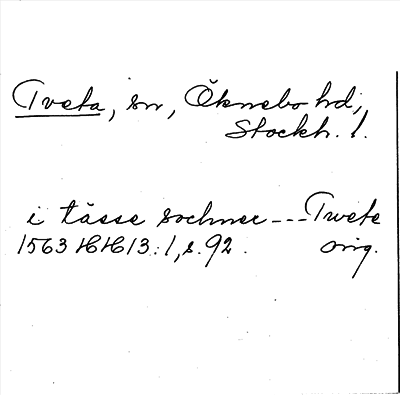 Tveta, sn, Öknebo hd,
Stockh. l.
i tässe sochner --- Twete
1563 HH 13:1, s. 92. orig.